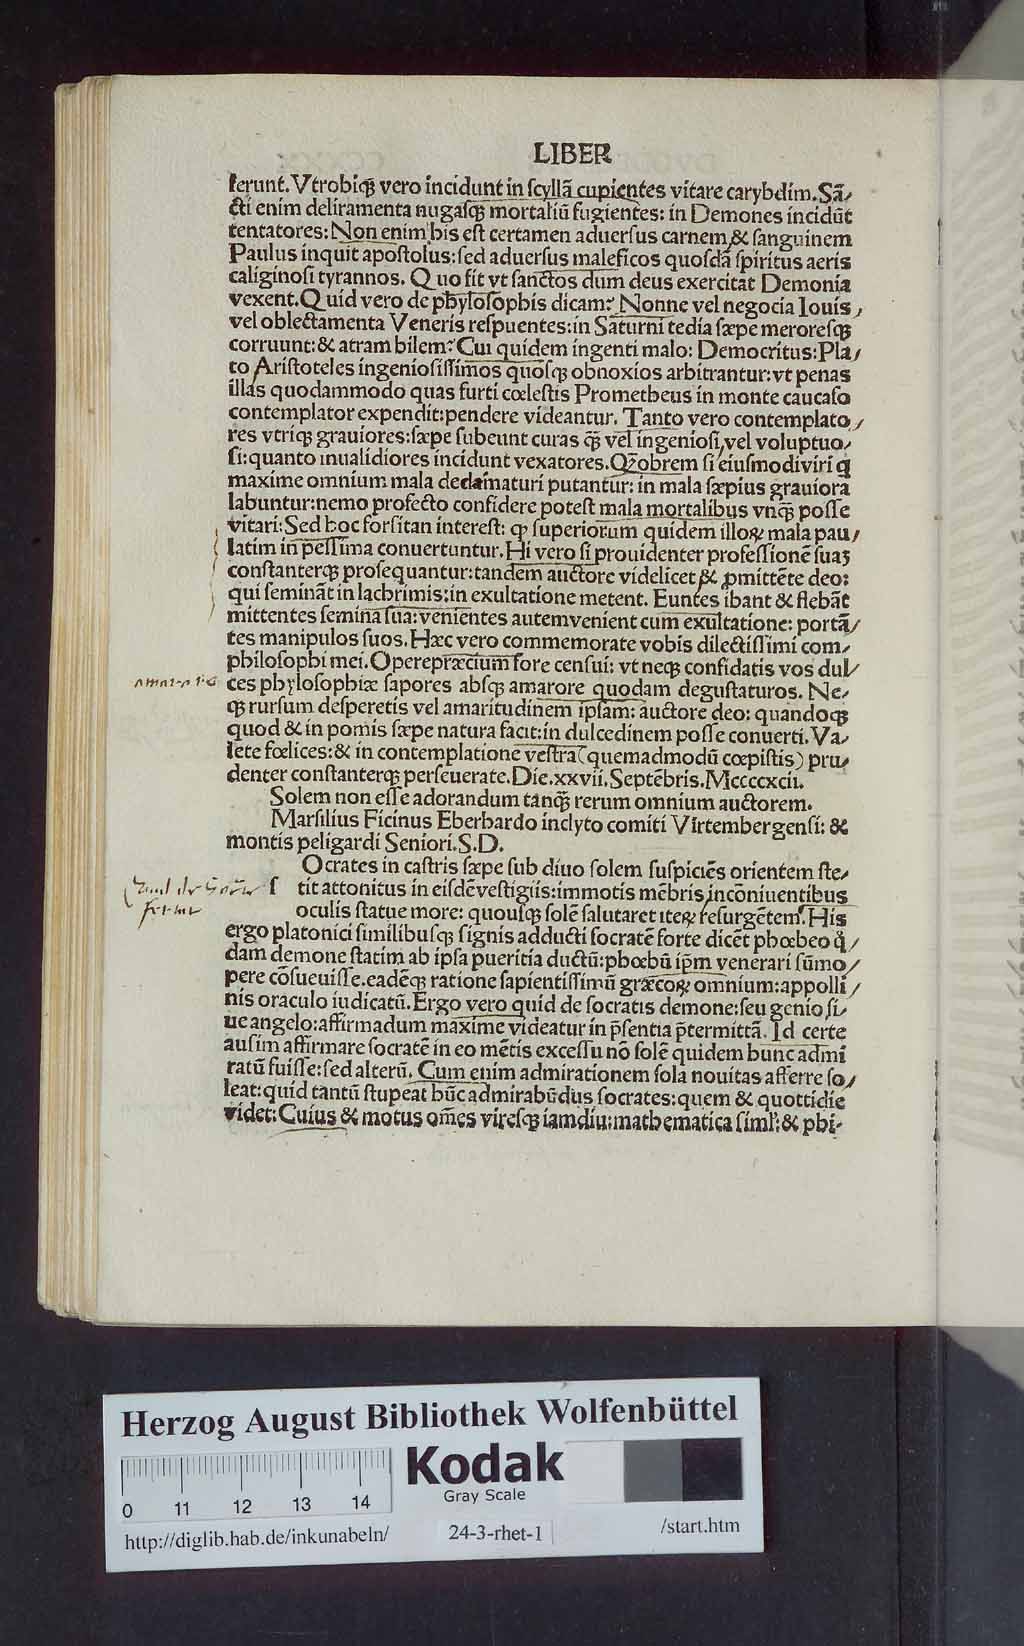 LIBER
ferunt. Vtrobiqꝫ vero incidunt in scyllã cupientes vitare carybdim. Sã/
cti enim deliramenta nugasqꝫ mortaliũ fugientes: in Demones incidũt
tentatores: Non enim bis est certamen aduersus carnem & sanguinem
Paulus inquit apostolus: sed aduersus maleficos quosdã spiritus aeris
caliginosi tyrannos. Quo fit vt sanctos dum deus exercitat Demonia
vexent. Quid vero de phylosophis dicam? Nonne vel negocia Iouis,
vel oblectamenta Veneris respuentes: in Saturni tedia sæpe meroresqꝫ
corruunt: & atram bilem? Cui quidem ingenti malo: Democritus: Pla/
to Aristoteles ingeniosissimos quosqꝫ obnoxios arbitrantur: vt penas
illas quodammodo quas furti cœlestis Prometheus in monte caucaso
contemplator expendit: pendere videantur. Tanto vero contemplato/
res vtriqꝫ grauiores: sæpe subeunt curas qꝫ̃ vel ingeniosi, vel voluptuo/
si: quanto inualidiores incidunt vexatores. Qꝫobrem si eiusmodi viri q
maxime omnium mala declinaturi putantur: in mala sæpius grauiora
labuntur: nemo profecto confidere potest mala mortalibus vnqꝫ̃ posse
vitari: Sed hoc forsitan interest: ꝙ superiorum quidem illoꝝ mala pau/
latim in pessima conuertuntur. Hi vero si prouidenter professionẽ suaꝫ
constanterqꝫ prosequantur: tandem auctore videlicet & ꝓmittẽte deo:
qui seminãt in lachrimis: in exultatione metent. Euntes ibant & flebãt
mittentes semina sua: venientes autemvenient cum exultatione: portã/
tes manipulos suos. Hæc vero commemorate vobis dilectissimi com/
philosophi mei. Operepræcium fore censui: vt neqꝫ confidatis vos dul/
ces phylosophiæ sapores absqꝫ amarore quodam degustaturos. Ne/
qꝫ rursum desperetis vel amaritudinem ipsam: auctore deo: quandoqꝫ
quod & in pomis sæpe natura facit: in dulcedinem posse conuerti. Va/
lete fœlices: & in contemplatione vestra (quemadmodũ cœpistis) pru/
denter constanterqꝫ perseuerate. Die. xxvii. Septẽbris. Mccccxcii.
Solem non esse adorandum tanqꝫ̃ rerum omnium auctorem.
Marsilius Ficinus Eberhardo inclyto comiti Virtembergensi: &
montis peligardi Seniori. S. D.
Ocrates in castris sæpe sub diuo solem suspiciẽs orientem ste/
s tit attonitus in eisdẽ vestigiis: immotis mẽbris, incõniuentibus
oculis statue more: quousqꝫ solẽ salutaret iteꝝ resurgẽtem. His
ergo platonici similibusqꝫ signis adducti socratẽ forte dicẽt phœbeo q̉/
dam demone statim ab ipsa pueritia ductũ: phœbũ ip̃m venerari sũmo/
pere cõsueuisse. eadẽqꝫ ratione sapientissimũ græcoꝝ omnium: appolli/
nis oraculo iudicatũ. Ergo vero quid de socratis demone: seu genio si/
ue angelo: affirmadum maxime videatur in p̃sentia p̃termittã. Id certe
ausim affirmare socratẽ in eo mẽtis excessu nõ solẽ quidem hunc admi
ratũ fuisse: sed alterũ. Cum enim admirationem sola nouitas afferre so/
leat: quid tantũ stupeat hũc admirabũdus socrates: quem & quottidie
videt: Cuius & motus om̃es viresqꝫ iamdiu: mathematica siml': & phi-
Herzog August Bibliothek Wolfenbüttel
Kodak
Gray Scale
0 11 12 13 14
http://diglib.hab.de/inkunabeln/ 24-3-rhet-1 /start.htm